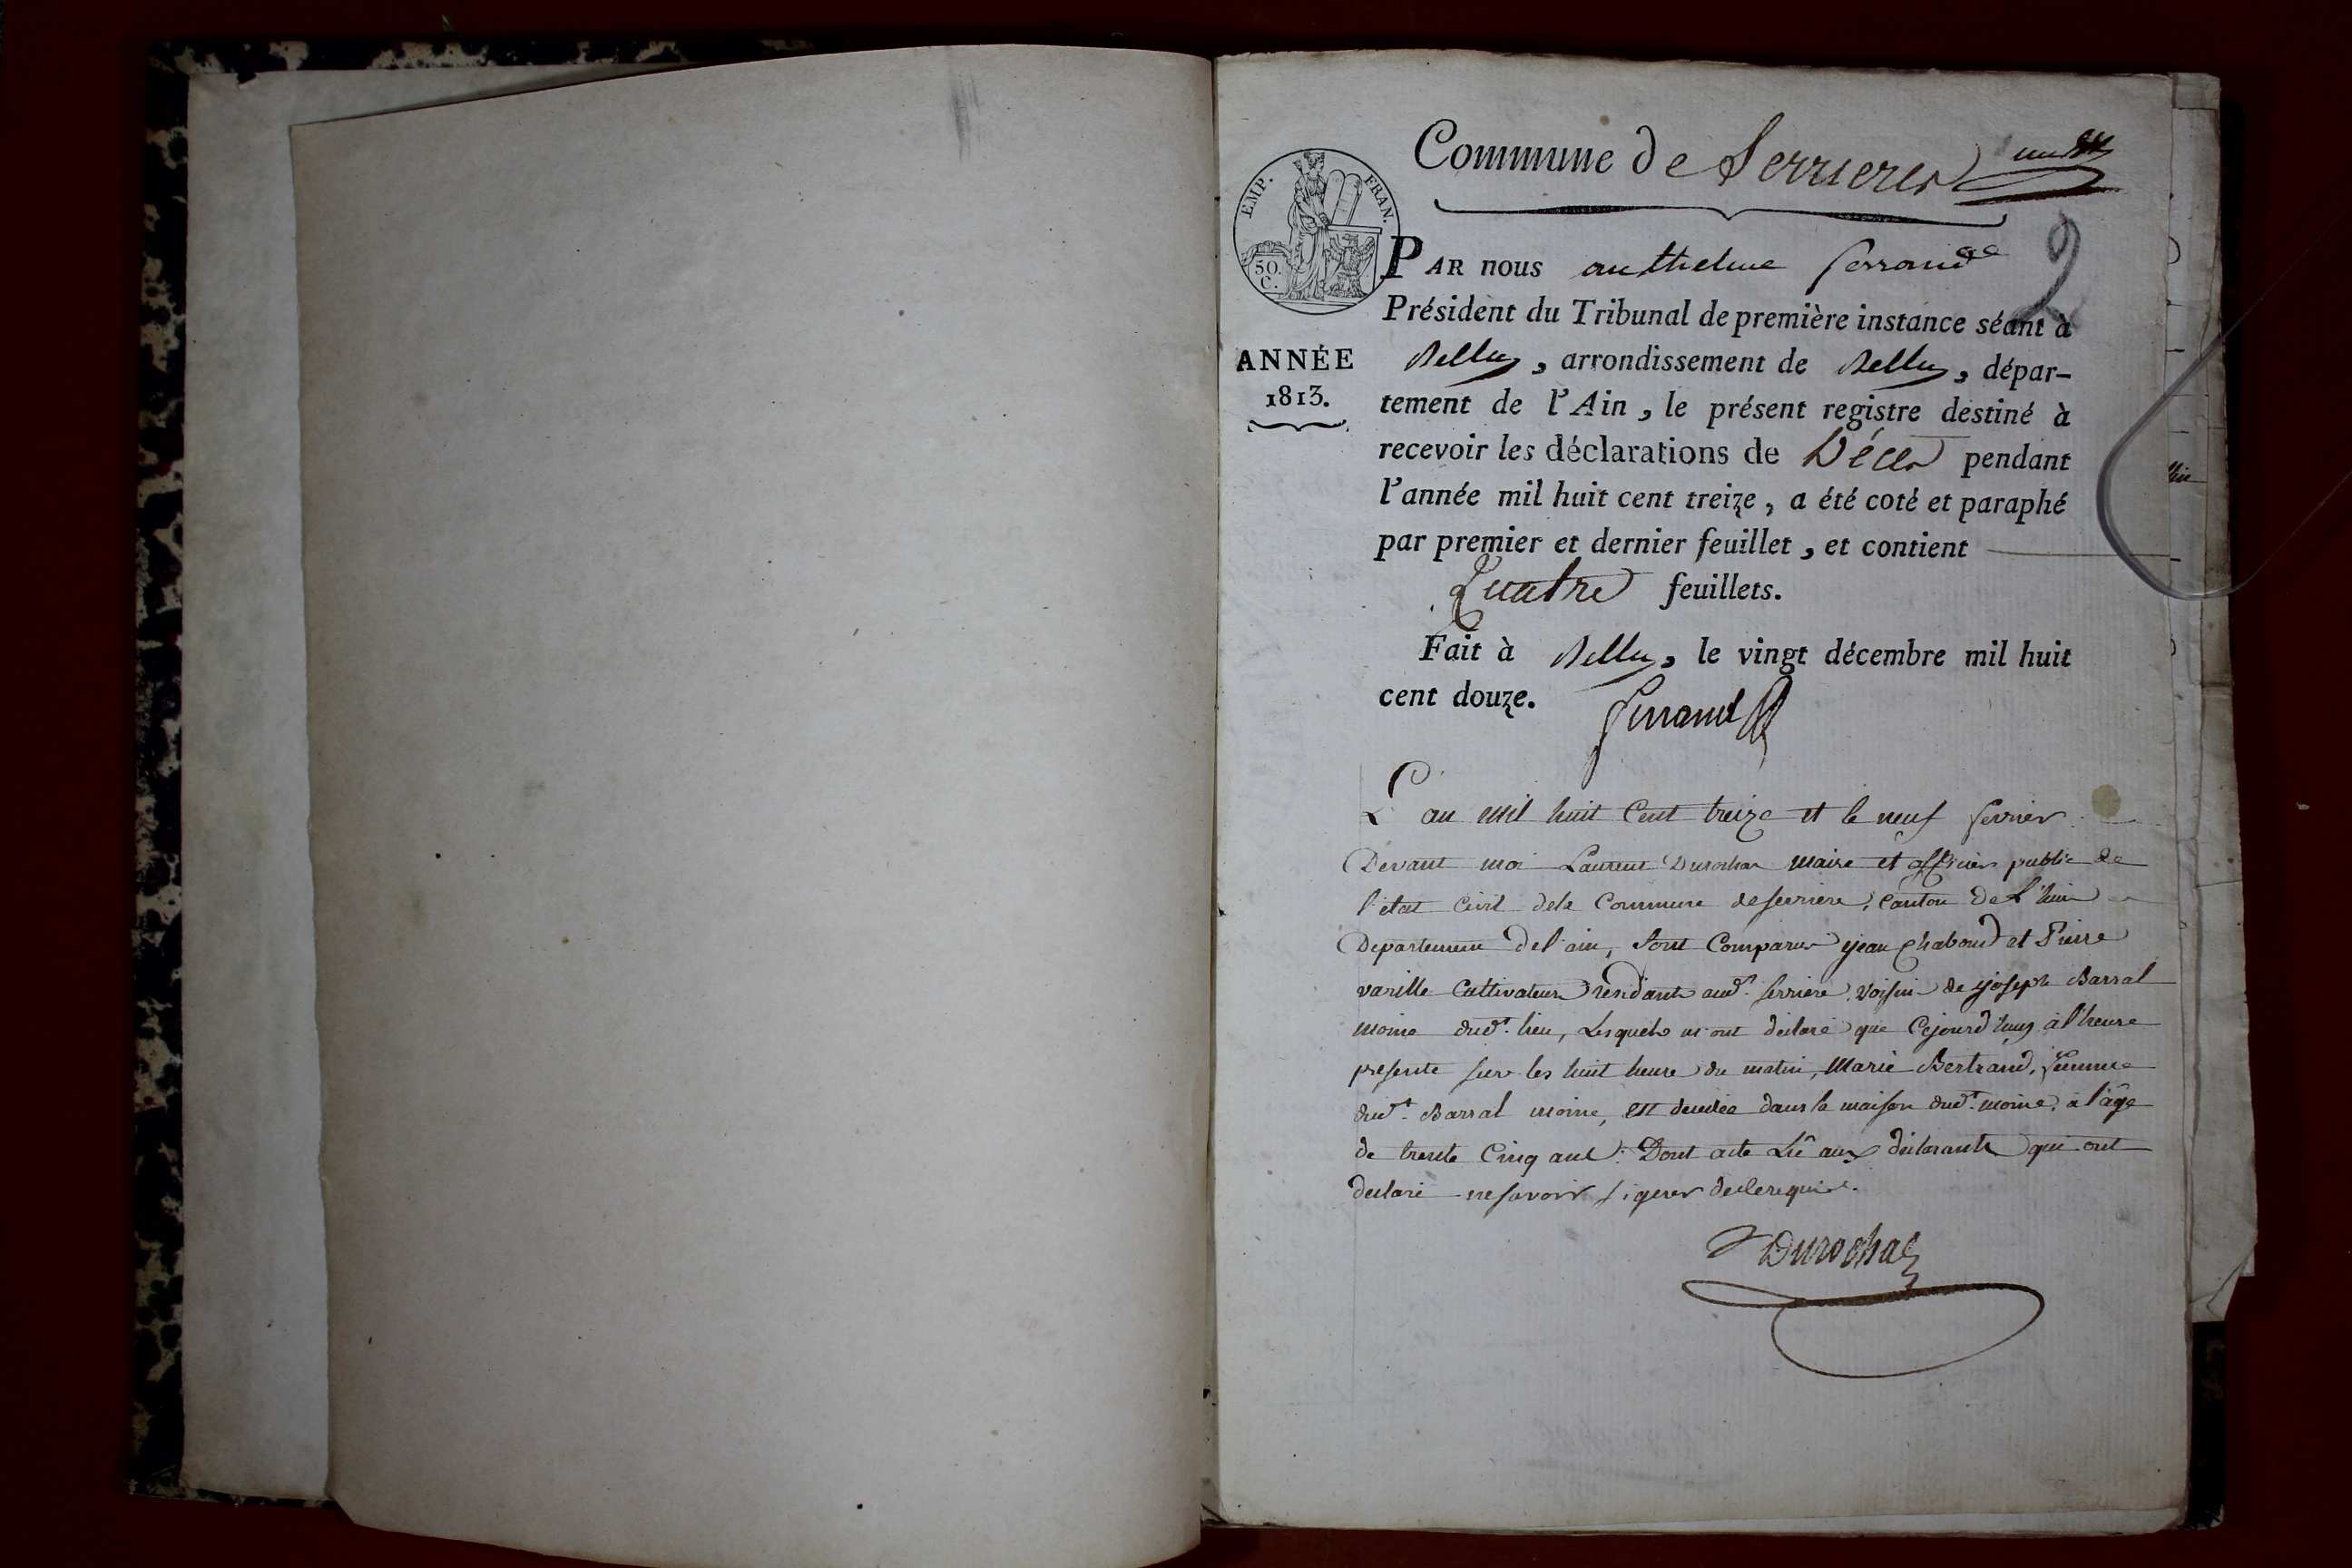 Commune de Serrieres
EMP. FRAN.
50.
C.
PAR nous anthelme ferrand
2
Président du Tribunal de première instance séant à
ANNÉE
1813.
Belley, arrondissement de Belley, dépar-
tement de l'Ain, le présent registre destiné à
recevoir les déclarations de Décès pendant
l'année mil huit cent treize, a été coté et paraphé
par premier et dernier feuillet, et contient
Quatre feuillets.
Fait à Belley, le vingt décembre mil huit
cent douze.
ferrand
L'an mil huit Cent treize et le neuf fevrier
Devant moi Laurent Durochat maire et officier public de
l'etat Civil dela Commune de serriere, Canton de L'huis
Departement del'ain, sont Comparus jean Chaboud et Pierre
varille Cultivateurs residants aud.t serriere, voisin de joseph Barral
moine dud.t lieu, Lesquels m'ont déclaré que Cejourd'huy à l'heure
presente sur les huit heure du matin, Marie Bertrand, femme
dud.t Barral moine, est décédée dans la maison dud.t moine, à l'âge
de trente Cinq ans: Dont acte Lû aux déclarants qui ont
declaré ne savoir signer de ce requis.
Durochat